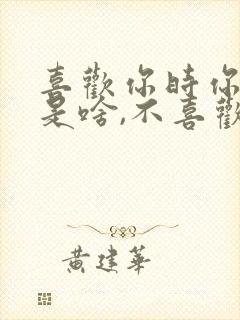 喜歡你時你
是啥,不喜歡
黄建華